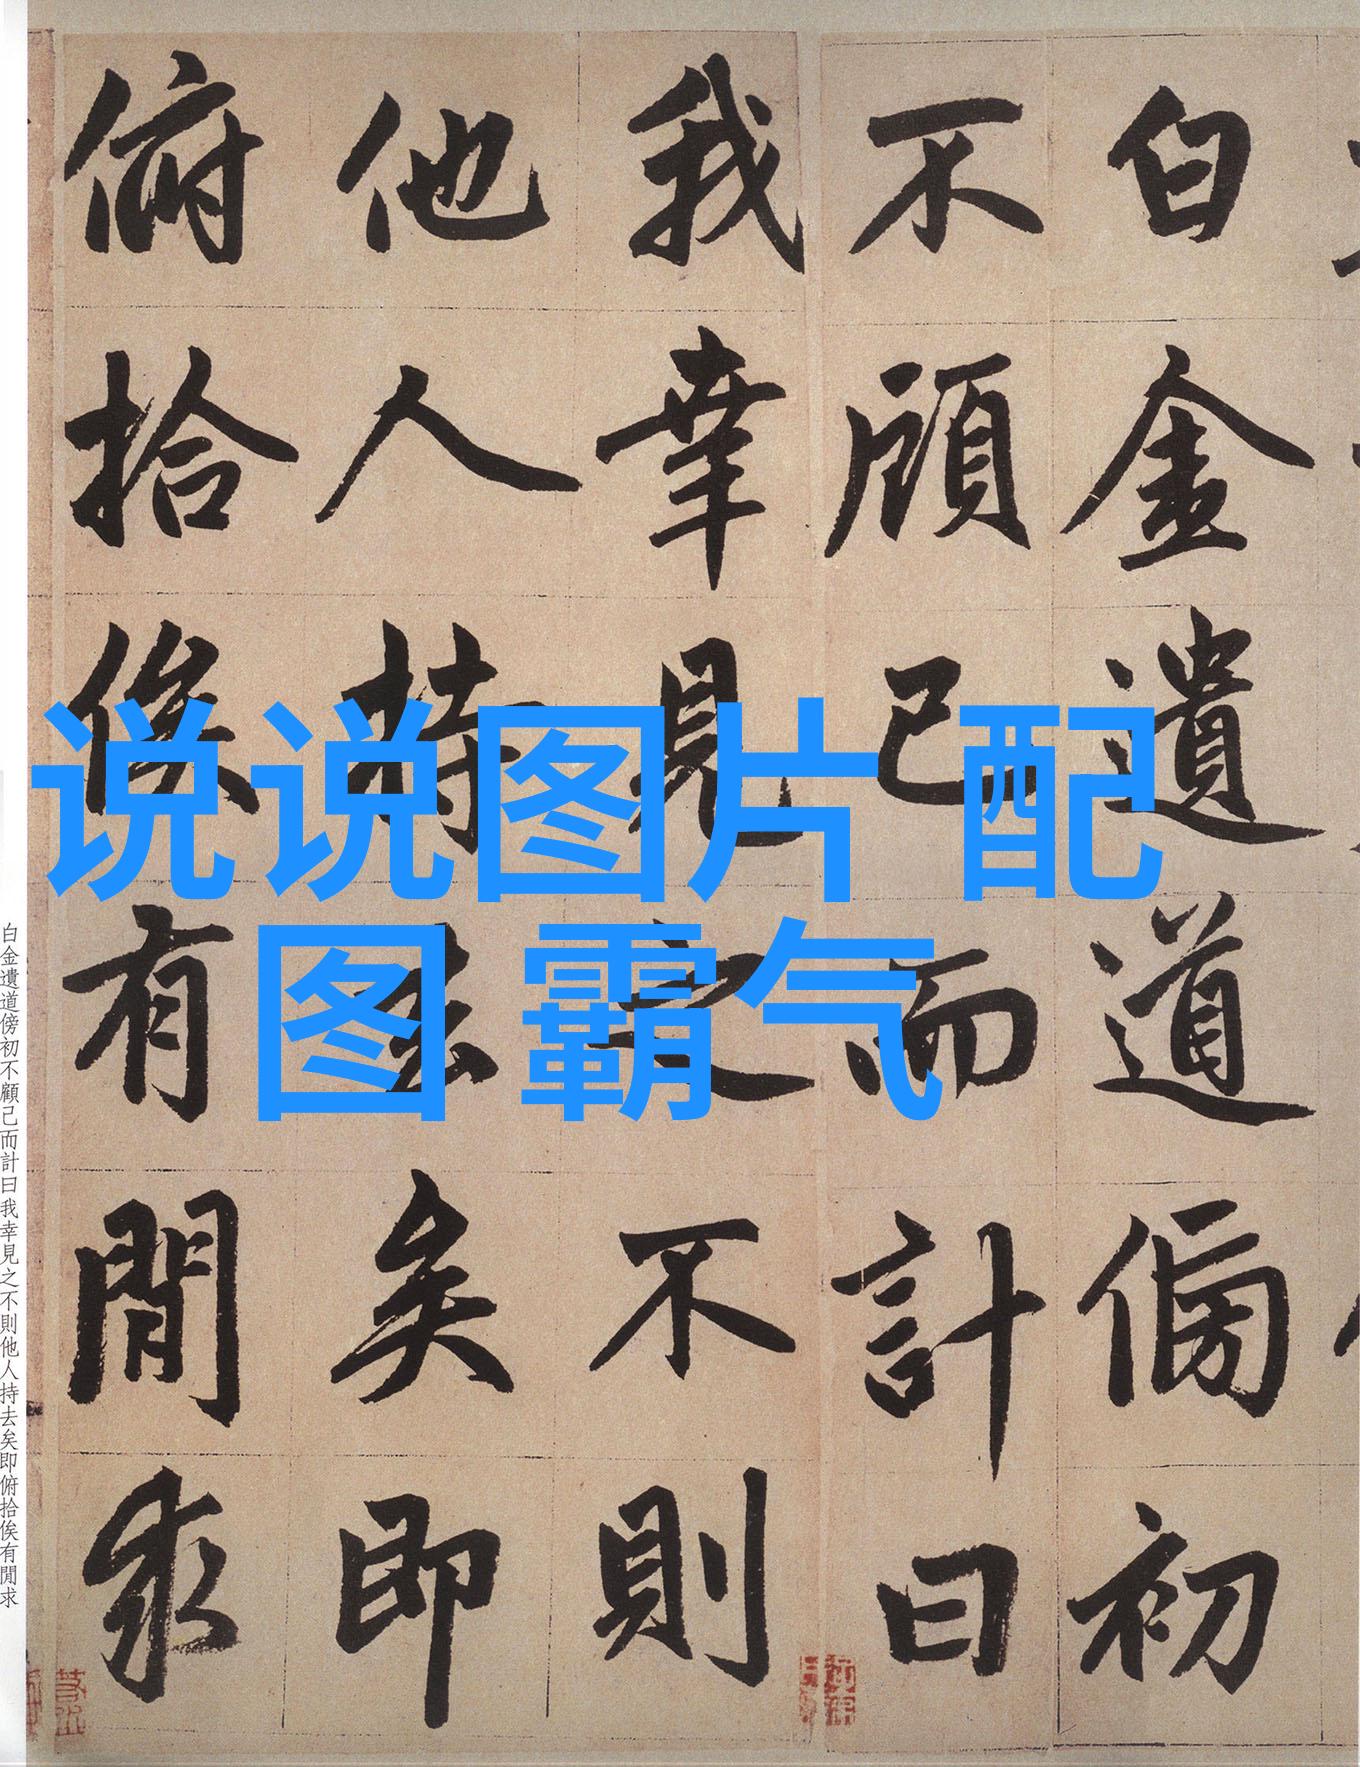 白金遺道傍初
不顧己而計曰
我幸見之不則
他人持去矣即
俯拾俟有閒求
说说图片 配
图 霸气
白金遺道傍初不顧己而計曰我幸見之不則他人持去矣即俯拾俟有閒求